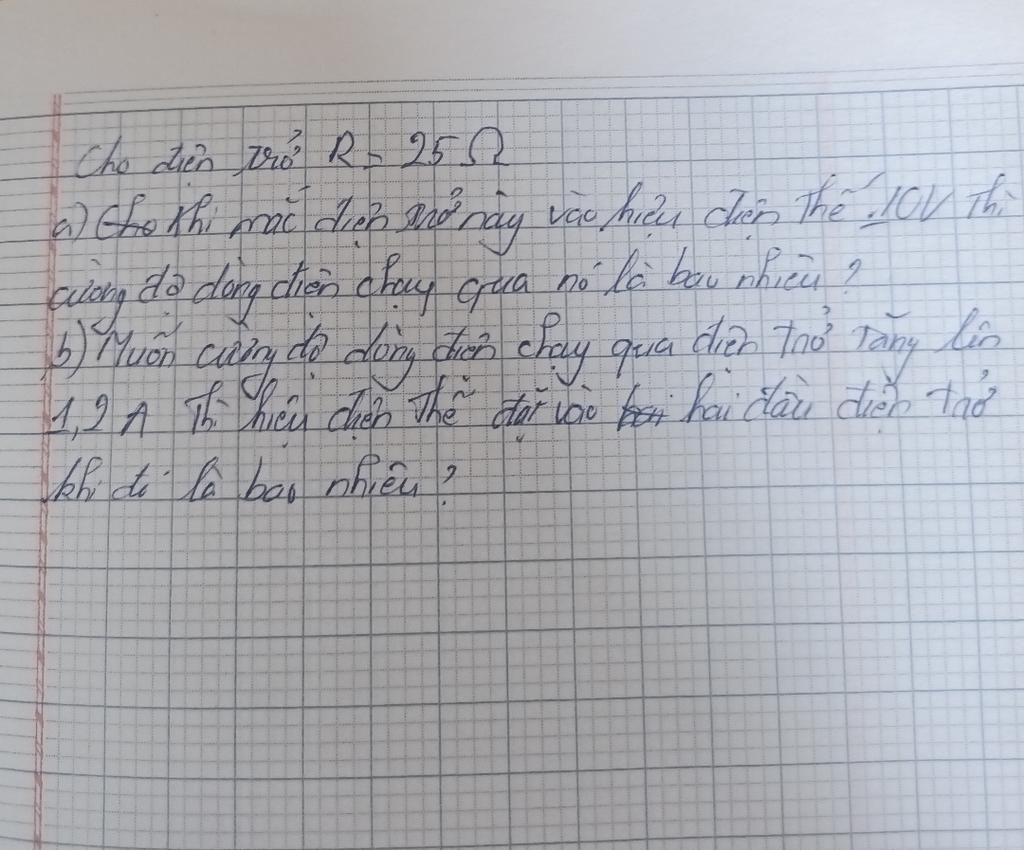 Cho điện trở R = 25 Ω
a) Cho khi mắc điện trở này vào hiệu điện thế 10V thì
cường độ dòng điện chạy qua nó là bao nhiêu ?
b) Muốn cường độ dòng điện chạy qua điện trở tăng lên
1,2 A thì hiệu điện thế đặt vào hai đầu điện trở
khi đó là bao nhiêu ?